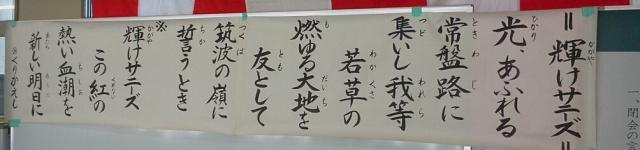 =輝けサニーズ=
光、あふれる
常盤路に
集いし我等
若草の
燃ゆる大地を
友として
筑波の嶺に
誓うとき
※輝けサニーズ
この紅の
熱い血潮を
新しい明日に
※くりかえし
一、閉会の